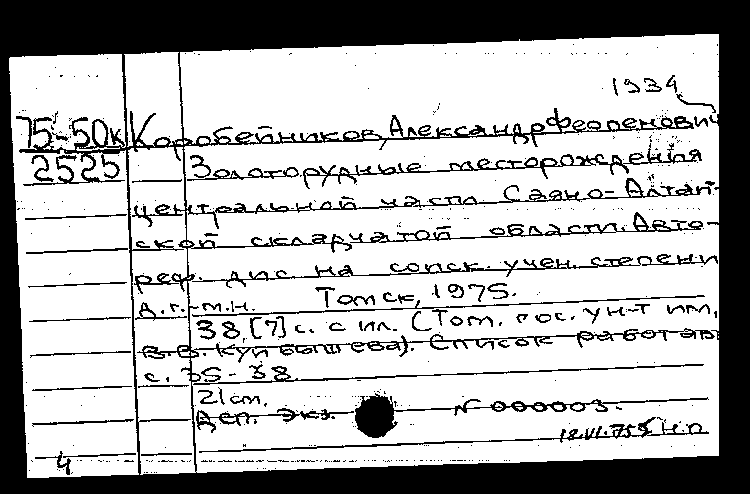 1934
75-50к Коробейников, Александр Феопенович
2525 Золоторудные месторождения
центральной части Саяно-Алтай-
ской складчатой области. Авто-
реф. дис на соиск. учен. степени
д.г.-м.н. Томск, 1975.
38,[7] с. с ил. (Том. гос. ун-т им.
В.В. Куйбышева). Список работ ав
с. 35-38.
21 см.
Деп. экз. № 000003.
12.VI.75 Н.П
4